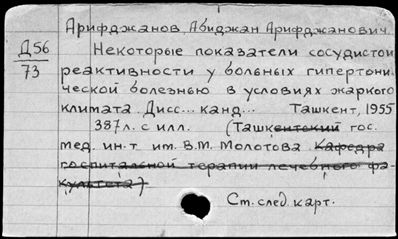 Арифджанов, Абиджан Арифджанович.
Д56
73
Некоторые показатели сосудистой
реактивности у больных гипертони-
ческой болезнью в условиях жаркого
климата. Дисс... канд... Ташкент, 1955
387л. с илл. (Ташкентский гос.
мед. ин-т им. В.М. Молотова. Кафедра
госпитальной терапии лечебного фа-
культета)
См. след. карт.